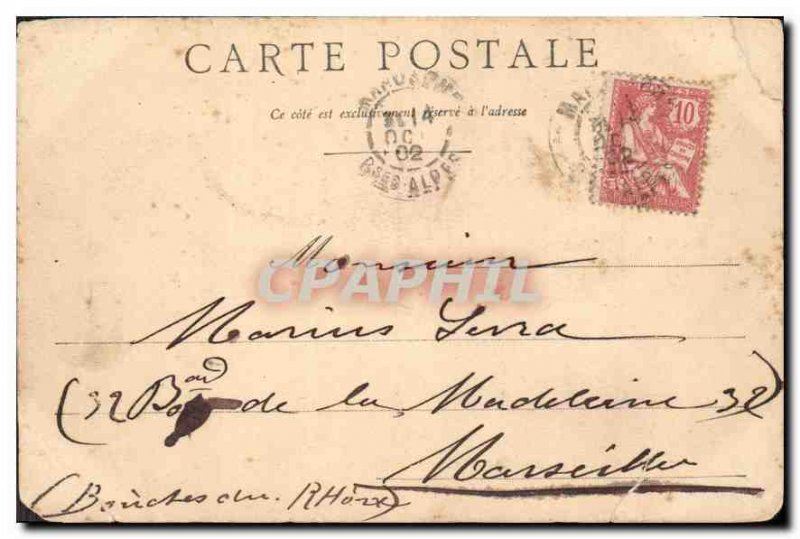 CARTE POSTALE
Ce côté est exclusivement réservé à l'adresse
14
OCT
02
Bses ALPES
10
Monsieur
CPAPHIL
Marius Serra
(32 Bard de la Madeleine 32)
Marseille
(Bouches du RHône)